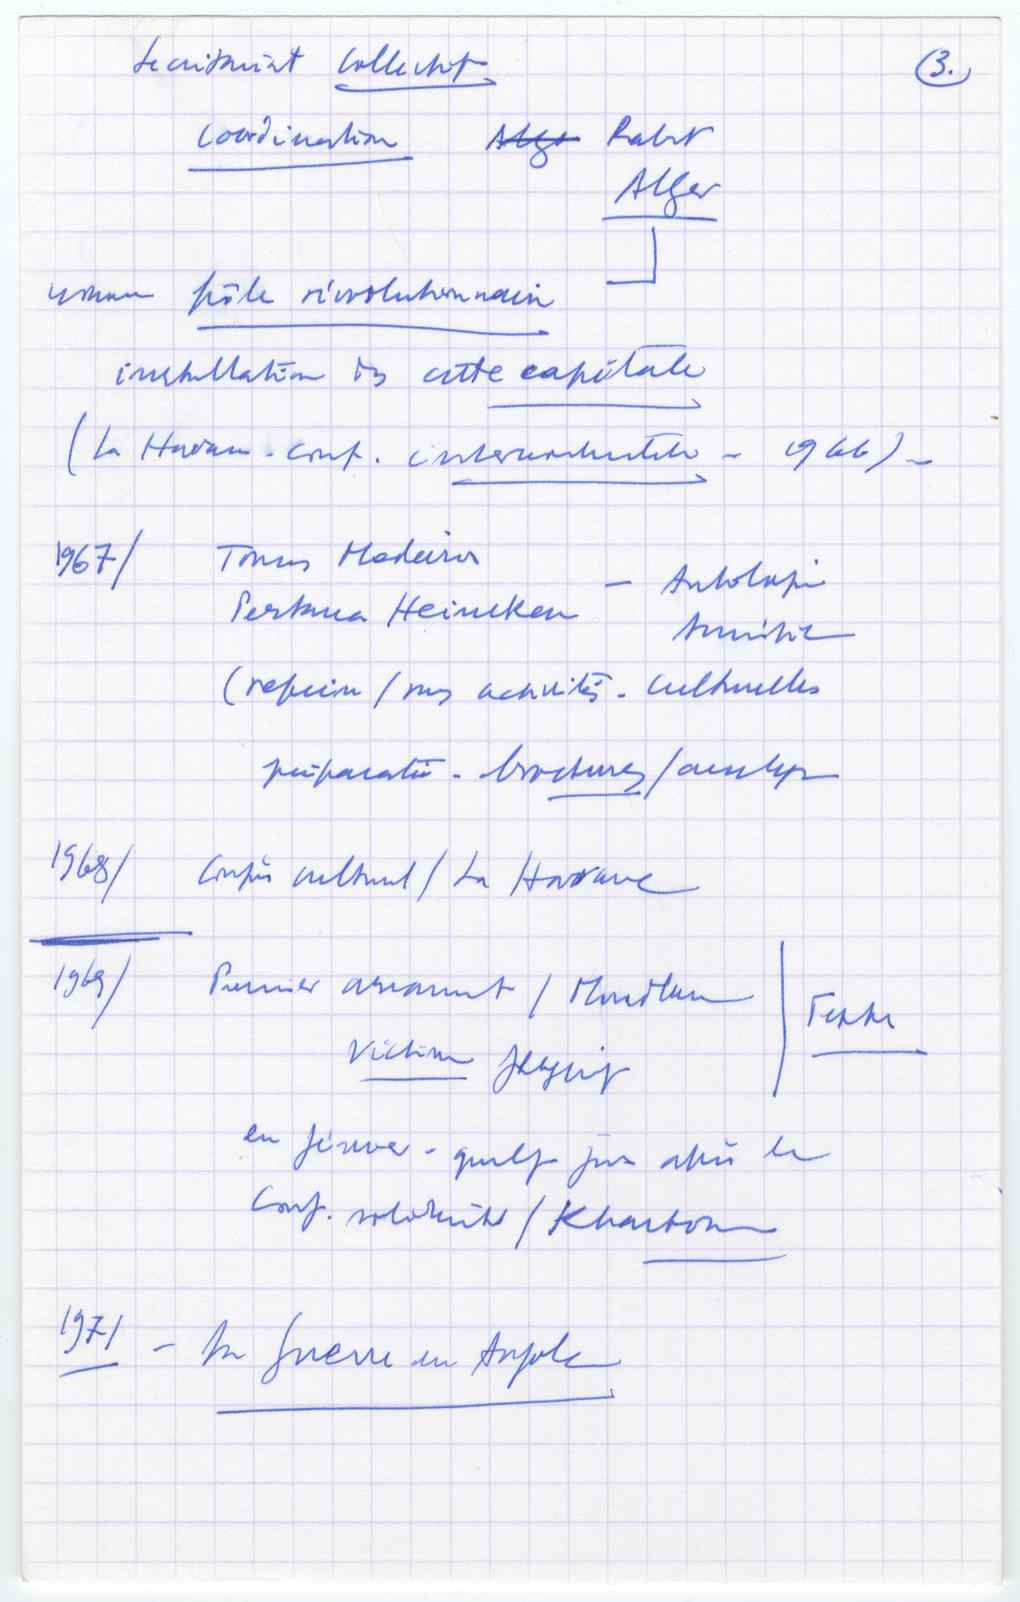 Secrétariat Collectif
3.
Coordination Alger Rabat
Alger
comme pôle révolutionnaire
installation ds cette capitale
(La Havane - conf. tricontinentale - 1966) -
1967/ Tomas Medeiros
Pestana Heineken - Antologie
Amitié
(repris / mes activités - culturelles
préparatio - brochures /
1968/ Congrès culturel / La Havane
1969/ Premier / Mondlane
Victime Texte
en février - quelq jours après la
Conf. solidarité / Khartoum
1971 - La guerre en Angola